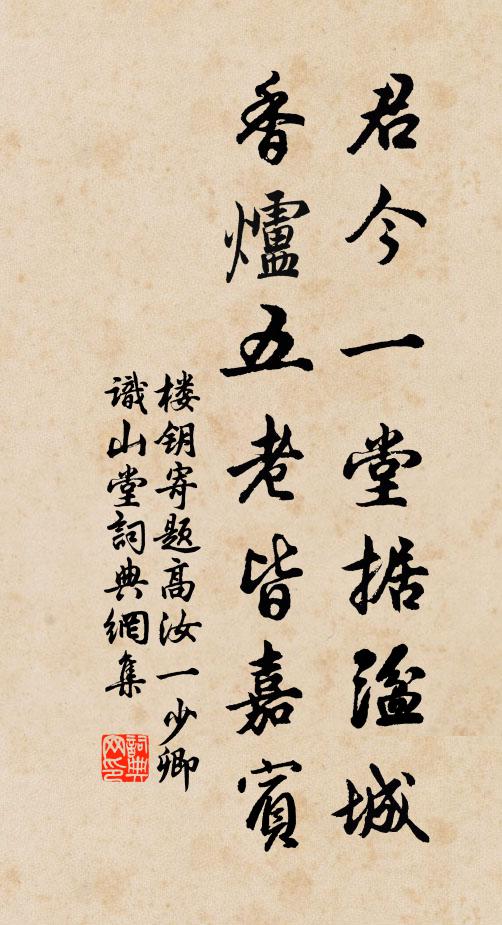 君今一堂据湓城
香爐五老皆嘉賓
楼钥寄题高汝一少卿
識山堂詞典網集
詞典网印